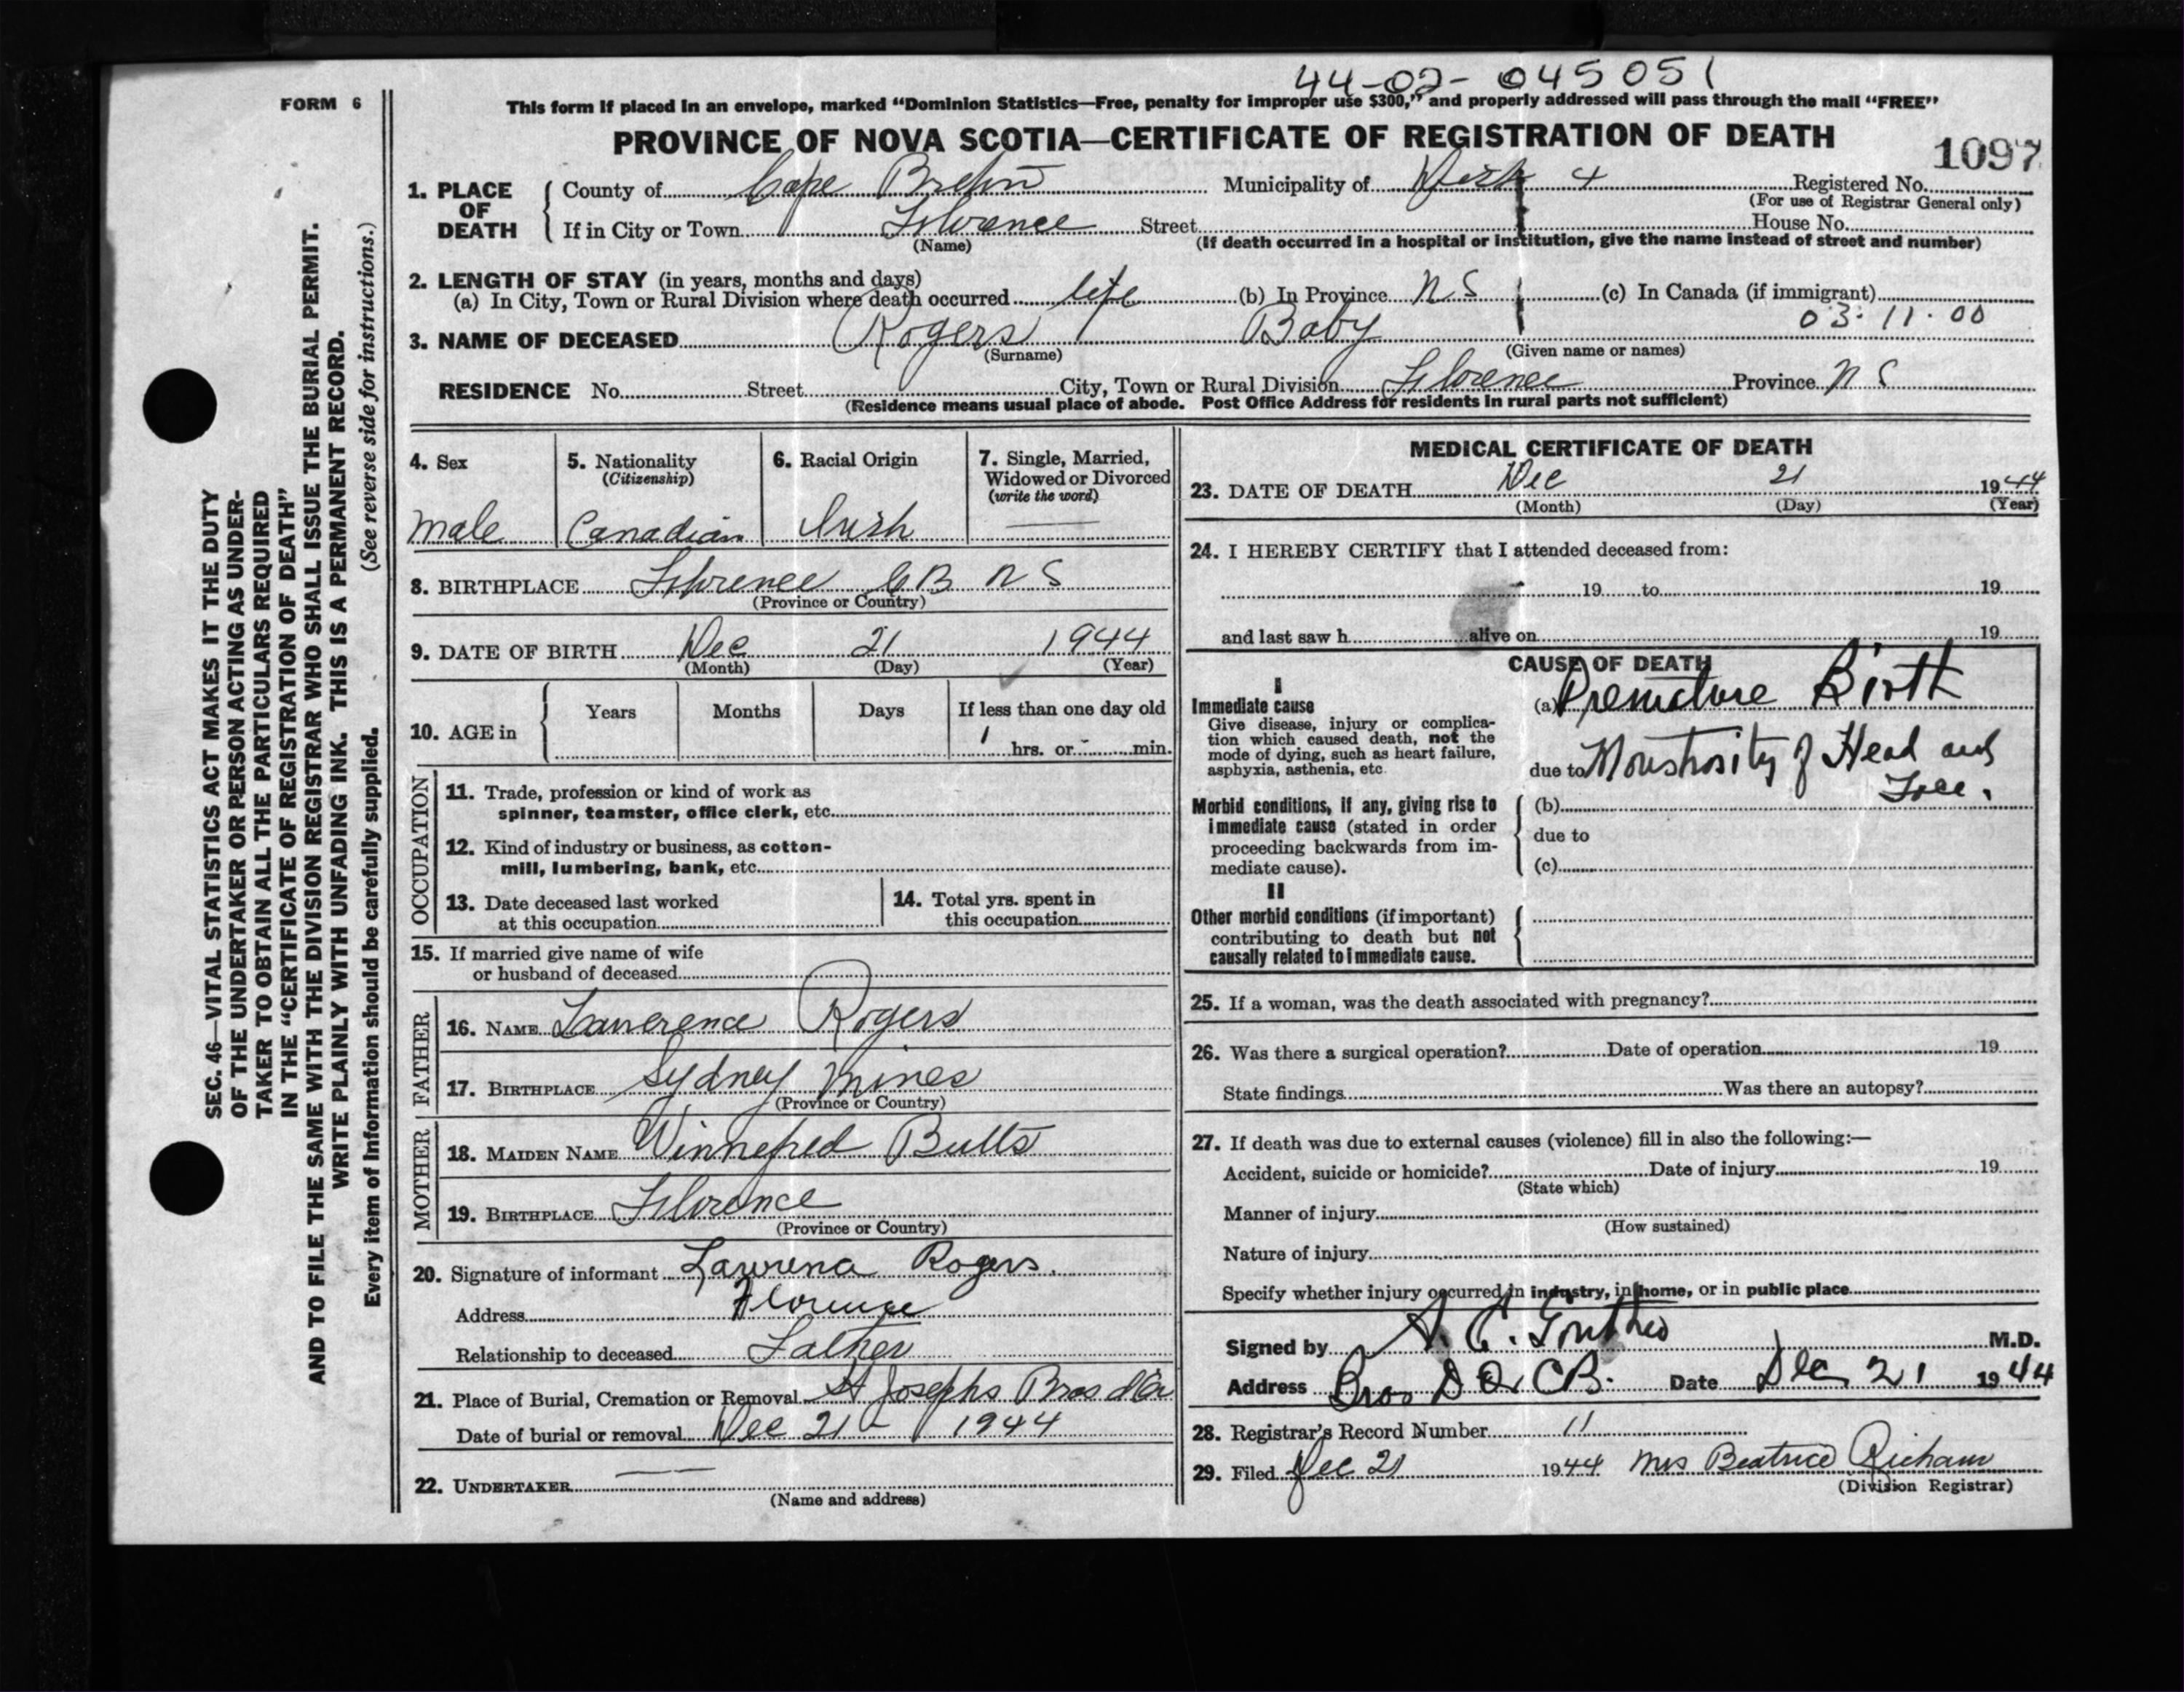 44-02-045051
FORM 6
This form if placed in an envelope, marked “Dominion Statistics—Free, penalty for improper use $300,” and properly addressed will pass through the mail “FREE”
PROVINCE OF NOVA SCOTIA—CERTIFICATE OF REGISTRATION OF DEATH
1097
1. PLACE OF DEATH
County of Cape Breton Municipality of Dist 4 Registered No.
(For use of Registrar General only)
If in City or Town Florence Street House No.
(Name) (If death occurred in a hospital or institution, give the name instead of street and number)
2. LENGTH OF STAY (in years, months and days)
(a) In City, Town or Rural Division where death occurred life (b) In Province N S (c) In Canada (if immigrant)
03·11·00
3. NAME OF DECEASED Rogers Baby
(Surname) (Given name or names)
RESIDENCE No. Street City, Town or Rural Division Florence Province N S
(Residence means usual place of abode. Post Office Address for residents in rural parts not sufficient)
SEC. 46—VITAL STATISTICS ACT MAKES IT THE DUTY
OF THE UNDERTAKER OR PERSON ACTING AS UNDER-
TAKER TO OBTAIN ALL THE PARTICULARS REQUIRED
IN THE “CERTIFICATE OF REGISTRATION OF DEATH”
AND TO FILE THE SAME WITH THE DIVISION REGISTRAR WHO SHALL ISSUE THE BURIAL PERMIT.
WRITE PLAINLY WITH UNFADING INK. THIS IS A PERMANENT RECORD.
Every item of information should be carefully supplied. (See reverse side for instructions.)
4. Sex 5. Nationality 6. Racial Origin 7. Single, Married,
(Citizenship) Widowed or Divorced
(write the word)
Male Canadian Irish —
8. BIRTHPLACE Florence C B N S
(Province or Country)
9. DATE OF BIRTH Dec 21 1944
(Month) (Day) (Year)
10. AGE in Years Months Days If less than one day old
1 hrs. or - min.
OCCUPATION
11. Trade, profession or kind of work as
spinner, teamster, office clerk, etc.
12. Kind of industry or business, as cotton-
mill, lumbering, bank, etc.
13. Date deceased last worked
at this occupation
14. Total yrs. spent in
this occupation
15. If married give name of wife
or husband of deceased
FATHER
16. NAME Lawerence Rogers
17. BIRTHPLACE Sydney Mines
(Province or Country)
MOTHER
18. MAIDEN NAME Winnefred Butts
19. BIRTHPLACE Florence
(Province or Country)
20. Signature of informant Rogers.
Address Florence
Relationship to deceased Father
21. Place of Burial, Cremation or Removal St Josephs Bras d'Or
Date of burial or removal Dec 21 - 1944
22. UNDERTAKER —
(Name and address)
MEDICAL CERTIFICATE OF DEATH
23. DATE OF DEATH Dec 21 1944
(Month) (Day) (Year)
24. I HEREBY CERTIFY that I attended deceased from:
19 to 19
and last saw h alive on 19
CAUSE OF DEATH
I
Immediate cause
Give disease, injury or complica-
tion which caused death, not the
mode of dying, such as heart failure,
asphyxia, asthenia, etc
(a) Premature Birth
due to Monstrosity of Head and
Face.
Morbid conditions, if any, giving rise to
immediate cause (stated in order
proceeding backwards from im-
mediate cause).
(b)
due to
(c)
II
Other morbid conditions (if important)
contributing to death but not
causally related to immediate cause.
25. If a woman, was the death associated with pregnancy?
26. Was there a surgical operation? Date of operation 19
State findings Was there an autopsy?
27. If death was due to external causes (violence) fill in also the following:—
Accident, suicide or homicide? Date of injury 19
(State which)
Manner of injury
(How sustained)
Nature of injury
Specify whether injury occurred in industry, in home, or in public place
Signed by M.D.
Address Bras D Or CB. Date Dec 21 1944
28. Registrar's Record Number 11
29. Filed Dec 21 1944 Mrs Beatrice
(Division Registrar)